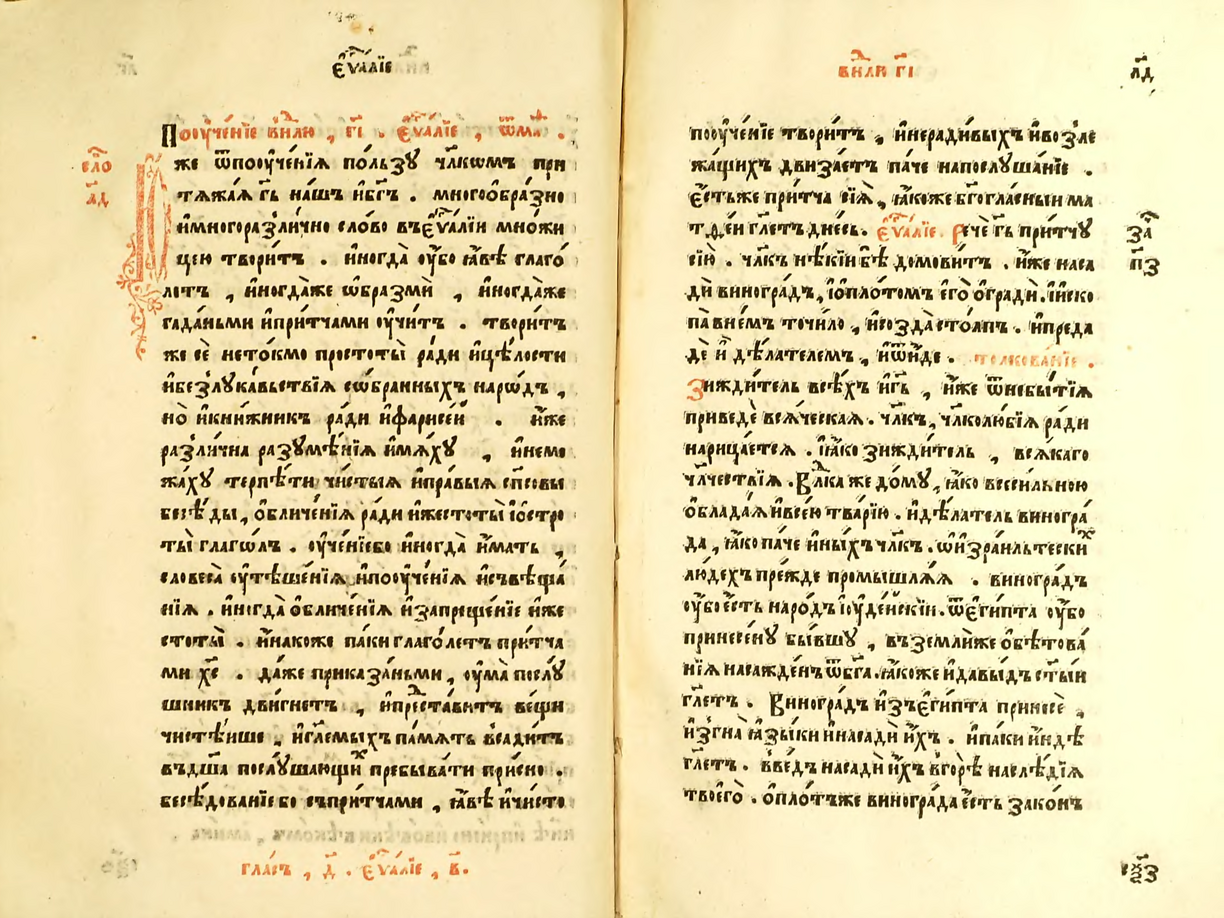 є҆ѵⷢ҇алїе
Поѹче́нїе внⷣлю , г҃і . є҆ѵⷢ҇а́лїе , ѿмⷴ҇а .
сло
л҃д
И҆же ѿпоѹче́нїѧ по́льзу чл҃кѡмъ при
тѧжа́ѧ гь҃ нашъ и҆бг҃ъ . многоѻ҆бра́зно
и҆многоразли́чно сло́во въє҆ѵⷢ҇а́лїи мно́жи
цею твори́тъ . и҆ногда̀ ѹ҆́бо ꙗ҆́вѣ глаго́
летъ , и҆ногда́же ѡ҆́бразми̇ , и҆ногда́же
гада́ньми и҆при́тчами ѹ҆чи́тъ . твори́тъ
же сѐ нето́кмо простоты̀ ра́ди и҆цѣ́лости
и҆безлука́вьствїѧ со́бранныхъ наро́дъ ,
но̀ и҆кни́жникъ ра́ди и҆фарисе́й . и҆́же
разли́чна разꙋмѣ́нїѧ и҆мѧ́хꙋ , и҆немо
жа́хꙋ терпѣ́ти чи́стыѧ и҆пра́выѧ сп҃совы
бесѣ́ды , ѻ҆бличе́нїѧ ра́ди и҆жестоты̀ і҆ѻ҆стро
ты̀ глаго́лъ . ѹ҆че́нїебо и҆ногда̀ и҆́мать ,
словеса̀ ѹ҆тѣше́нїѧ и҆поѹче́нїѧ и҆съвѣща́
нїѧ . и҆ногда̀ ѻ҆бличе́нїѧ и҆запреще́нїе и҆же
стоты̀ . и҆на́коже па́ки глаго́летъ при́тча
ми хс҃ . да́же приказа́ньми , ѹ҆ма̀ послꙋ́
шникъ дви́гнетъ , и҆преⷣста́витъ ве́щи
чистѣ́ише , и҆гл҃емыхъ па́мѧть всади́тъ
въдш҃а послꙋ́шающиⷯ пребыва́ти при́сно .
бесѣ́дованїе бо съпри́тчами , ꙗ҆́вѣ и҆чи́сто
гла́съ , д҃ . є҆ѵⷢ҇а́лїе , в҃ .
внⷣлѧ г҃і
л҃д
поѹче́нїе твори́тъ , и҆неради́выхъ и҆возле
жа́щихъ дви́заетъ па́че напослꙋша́нїе .
є҆́стьже при́тча сїѧ̀ , ꙗ҆́коже бг҃огла́сныи ма
тѳе́и гл҃етъ дне́сь . є҆ѵⷢ҇а́лїе . Речѐ гь҃ при́тчꙋ
сїю̀ . чл҃къ нѣ́кїи бѣ̀ домови́тъ . и҆́же наса
дѝ виногра́дъ , і҆ѻ҆пло́томъ є҆го̀ ѻ҆градѝ . і҆иско
па̀ вне́мъ точи́ло , и҆созда̀ сто́лпъ . и҆преда
дѐ и҆̀ дѣ́лателемъ , и҆ѿи́де . толкова́нїе .
за
п҃з
Зижди́тель всѣ́хъ и҆гь҃ , и҆́же ѿнебытїѧ̀
приведѐ всѧ́ческаѧ . чл҃къ , чл҃колю́бїѧ ра́ди
нарица́етсѧ . і҆ꙗ҆́ко зижди́тель , всѧ́каго
чл҃чествїѧ . Влⷣка же до́мꙋ , ꙗ҆́ко всеси́льною
ѻ҆блада́ѧ и҆все́ю тва́рїю . и҆дѣ́латель виногра́
да , ꙗ҆́ко па́че и҆ны́хъ чл҃къ . ѡ҆и҆зра́ильтескиⷯ
лю́дехъ пре́жде промышлѧ́ѧ . виногра́дъ
ѹ҆́бо є҆́сть наро́дъ і҆ꙋде́йскїи . ѿє҆ги́пта ѹ҆́бо
принесе́нꙋ бы́вшꙋ , въземли́же ѻ҆бѣтова́
нїѧ насажде́нъ ѿбг҃а . ꙗ҆́коже и҆дав҃ы́дъ ст҃ы́и
гл҃етъ . Виногра́дъ и҆зъє҆ги́пта принесѐ ,
и҆згна̀ ꙗ҆зы́ки и҆насадѝ и҆́хъ . и҆па́ки и҆́ндѣ
гл҃етъ . вве́дъ насадѝ и҆́хъ вгорѣ̀ наслѣ́дїѧ
твоего̀ . ѻ҆пло́тъже виногра́да є҆́сть зако́нъ